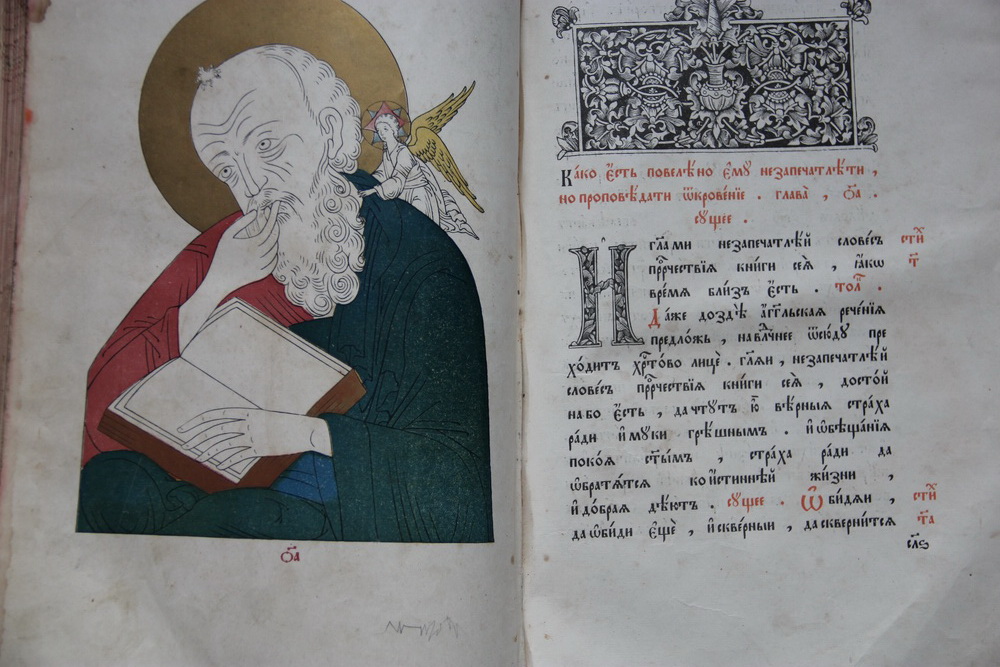 о҃а
Ка́ко є҆́сть повелѣ́но є҆мꙋ̀ незапечатлѣ́ти ,
но проповѣ́дати ѿкрове́нїе . глава̀ , о҃а .
сꙋщее .
И҆ гл҃а ми незапечатлѣ́й слове́съ
прⷪ҇рчествїѧ кни́ги сеѧ̀ , ꙗ҆́кѡ
вре́мѧ бли́зъ є҆́сть . тол .
Да́же доздѣ̀ а҆́гг҃льскаѧ рече́нїѧ
предло́жь , на влⷣчнее ѿсю́дꙋ пре
хо́дитъ хрⷭ҇то́во лицѐ . гл҃ѧй , незапечатлѣ́й
слове́съ прⷪ҇рчествїѧ кни́ги сеѧ̀ , досто́й
на бо є҆́сть , да чтꙋ́тъ ю҆̀ вѣ́рныѧ стра́ха
ра́ди и҆ мꙋ́ки грѣ́шнымъ . и҆ ѡ҆бѣща́нїѧ
поко́ѧ ст҃ы́мъ , стра́ха ра́ди да
ѡ҆братѧ́тсѧ ко и҆́стиннѣй жи́зни ,
и҆ до́браѧ дѣ́ютъ . сꙋщее . Ѡ҆би́дѧи ,
да ѡ҆би́ди є҆щѐ , и҆ скве́рныи , да скверни́тсѧ
сти́
т҃
сти́
т҃а
сл҃ѕ